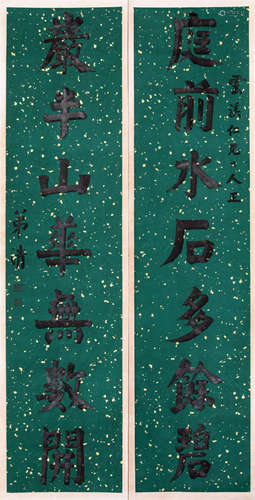 庭前水石多餘碧
仁兄大人正
巖半山華無數開
弟